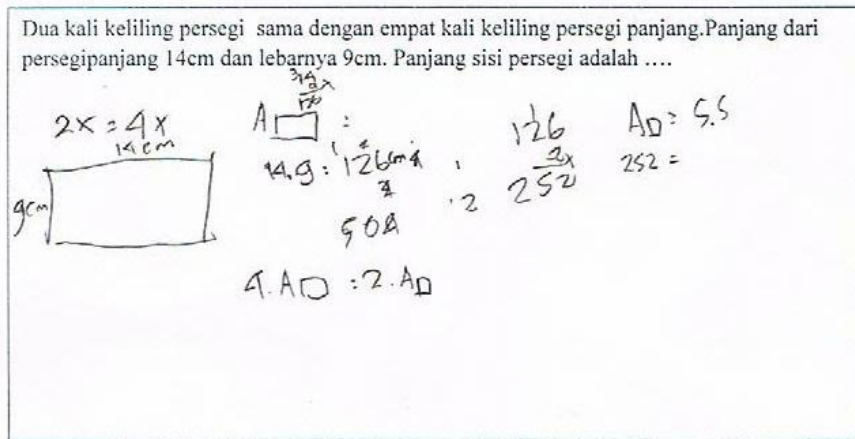 Dua kali keliling persegi sama dengan empat kali keliling persegi panjang.Panjang dari
persegipanjang 14cm dan lebarnya 9cm. Panjang sisi persegi adalah ….
2x = 4x
14cm
9cm
A▭ :
14.9 : 126cm
504
4.A▭ : 2.A□
126
2x
252
A□ = S.S
252 =